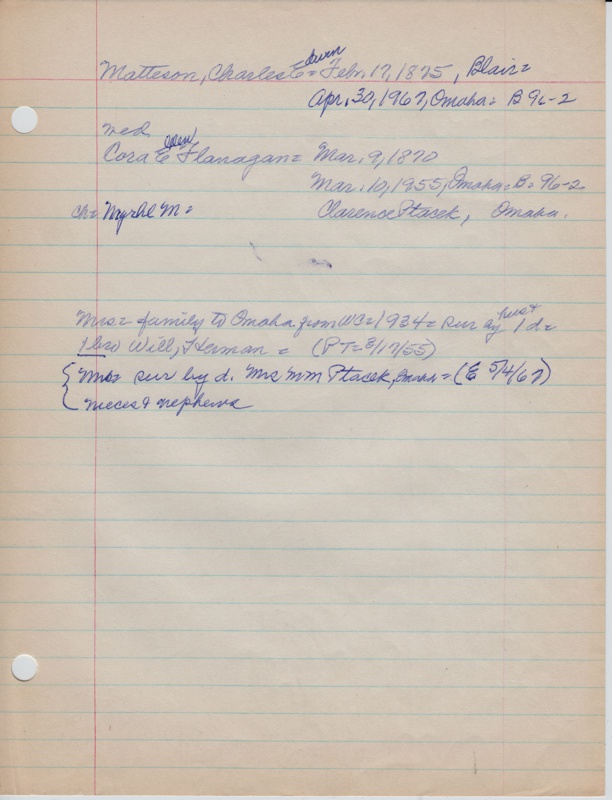 Matteson, Charles E = Febr. 17, 1875, Blair =
Apr. 30, 1967, Omaha = B 96-2
wed
Cora E Flanagan = Mar. 9, 1870
Mar. 10, 1955, Omaha = B = 96-2
ch = Myrhl M = Clarence Ptacek, Omaha.
Mrs = family to Omaha from WC = 1934 = sur by hus + 1 d =
1 bro Will, Herman = (PT = 3/17/55)
sur by d. Mrs MM Ptacek, Omaha = (E 5/4/67)
nieces & nephews